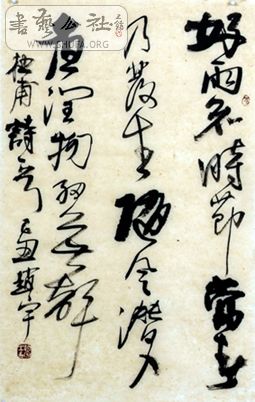 書藝公社
WWW.SHUFA.ORG
好雨知時節當春
乃發生隨風潛入
夜潤物細無聲
杜甫詩句己丑趙宇